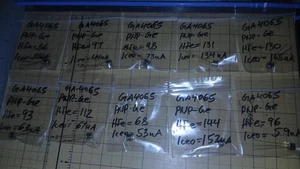 GA4065
PNP-Ge
Hfe=
Iceo=
GA4065
PNP-Ge
Hfe=97
Iceo=
GA4065
PNP-Ge
Hfe=98
Iceo=
GA4065
PNP-Ge
Hfe=131
Iceo=134uA
GA4065
PNP-Ge
Hfe=130
Iceo=
GA4065
PNP-Ge
Hfe=93
Iceo=
GA4065
PNP-Ge
Hfe=112
Iceo=
GA4065
PNP-Ge
Hfe=68
Iceo=53uA
GA4065
PNP-Ge
Hfe=144
Iceo=152uA
GA4065
PNP-Ge
Hfe=96
Iceo=